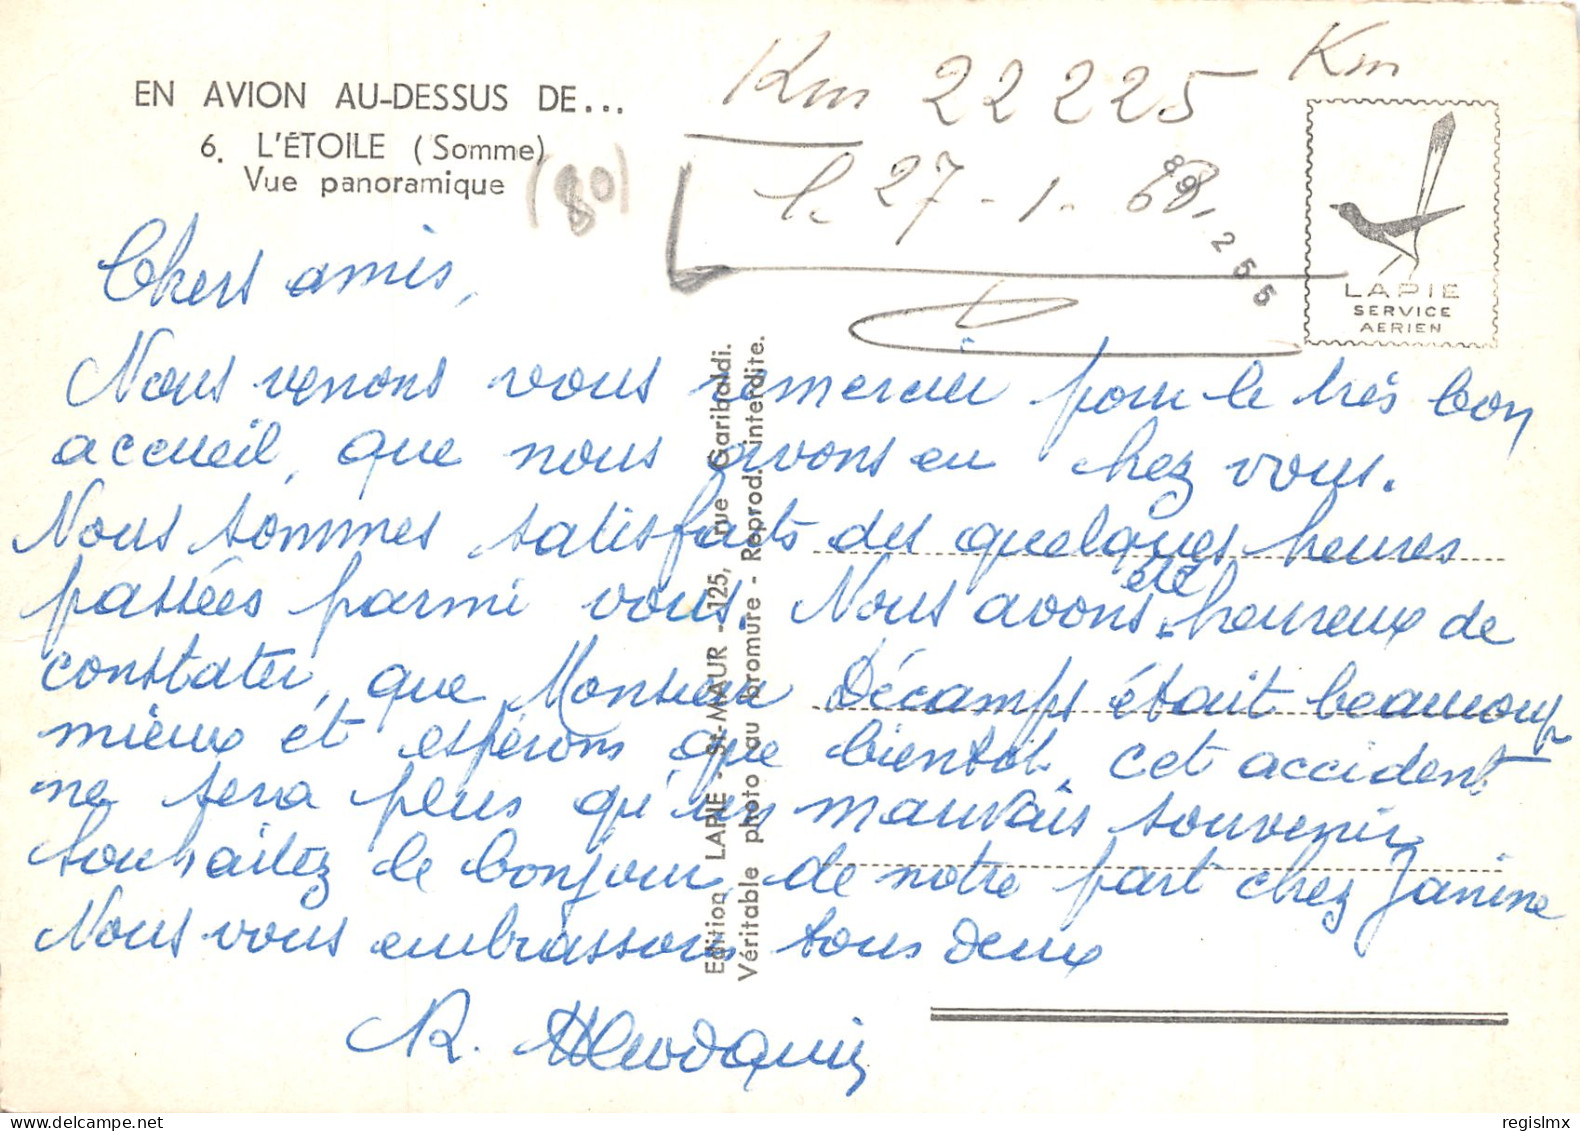 EN AVION AU-DESSUS DE...
6. L'ÉTOILE (Somme)
Vue panoramique
(80)
Km 22225 Km
le 27-1-68
89-255
LAPIE
SERVICE
AERIEN
Chers amis,
Nous venons vous remercier pour le très bon
accueil, que nous avons eu chez vous.
Nous sommes satisfaits des quelques heures
passées parmi vous. Nous avons été heureux de
constater, que Monsieur Décamps était beaucoup
mieux et espérons que bientôt, cet accident
ne sera plus qu'un mauvais souvenir
souhaitez le bonjour de notre part chez Janine
Nous vous embrassons tous deux
R.
Edition LAPIE - St-MAUR - 125, rue Garibaldi.
Véritable photo au bromure - Reprod. interdite.
regislmx